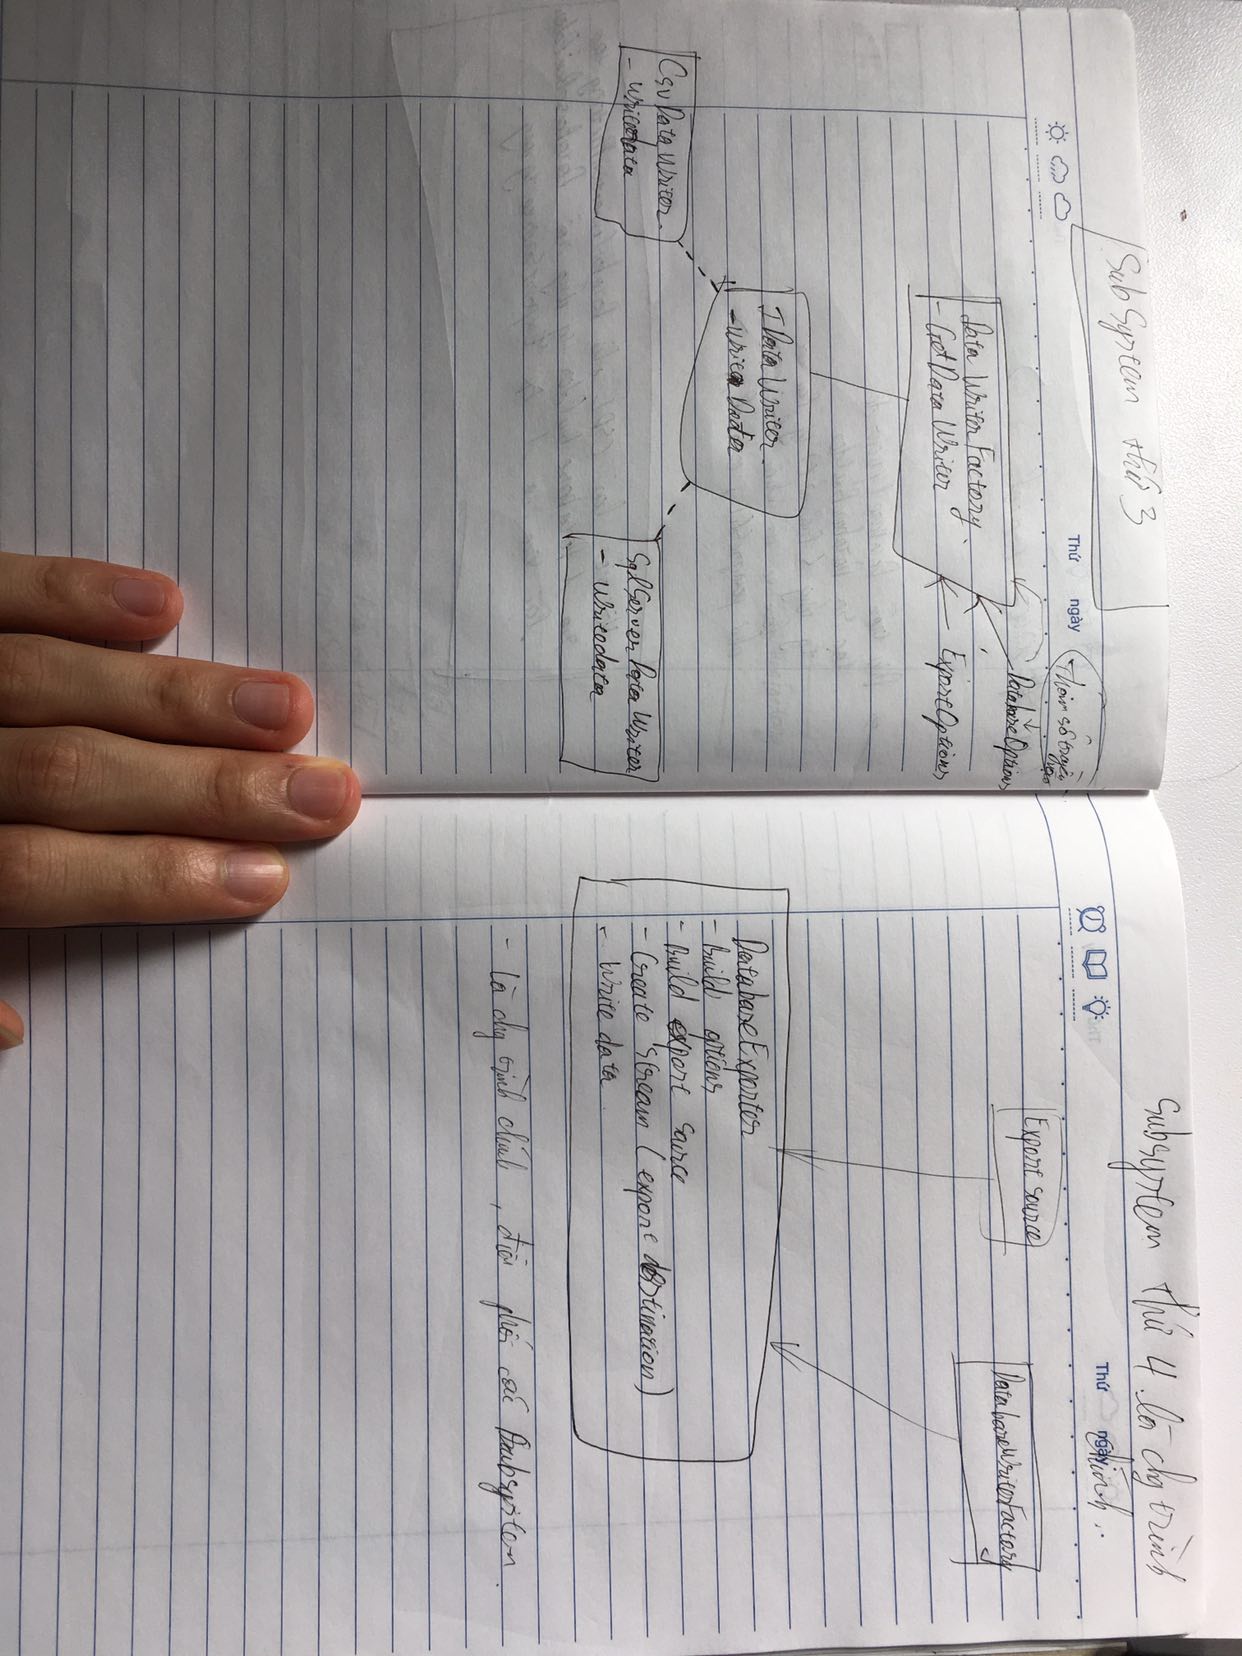 SubSystem thứ 3
Thứ ngày
Tham số truyền vào
DatabaseOptions
ExportOptions
Data Writer Factory
- GetData Writer
IData Writer
- Write Data
Csv Data Writer
- Writedata
SqlServer Data Writer
- Writedata
Subsystem thứ 4 là chg trình
chính..
Thứ ngày
Export source
DatabaseWriterFactory
DatabaseExporter
- Build options
- Build export source
- Create stream (export destination)
- Write data
- là chg trình chính, điều phối các subsystem.